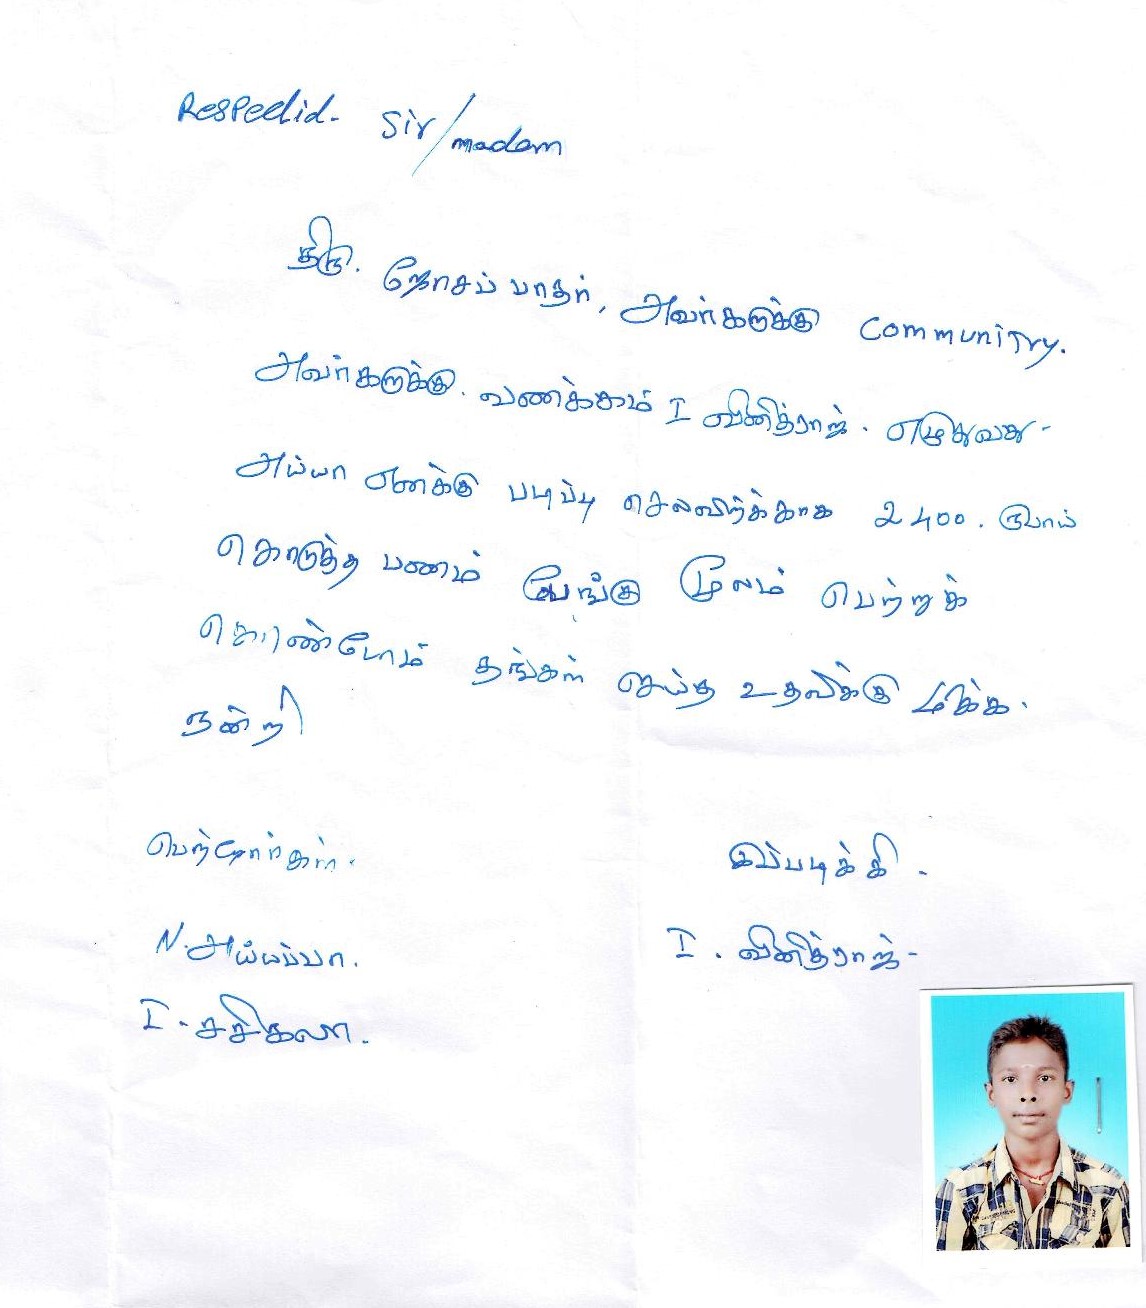 Respectid. Sir/madam
திரு. ஜோசப் பாதர், அவர்களுக்கு Communitry.
அவர்களுக்கு. வணக்கம் I வினித்ராஜ். எழுதுவது-
அய்யா எனக்கு படிப்பு செலவிற்க்காக 2400. ரூபாய்
கொடுத்த பணம் பேங்கு மூலம் பெற்றுக்
கொண்டோம் தங்கள் செய்த உதவிக்கு மிக்க.
நன்றி
பெற்றோர்கள்.
இப்படிக்கி.
N. அய்யப்பா.
I. வினித்ராஜ்-
I. சசிகலா.